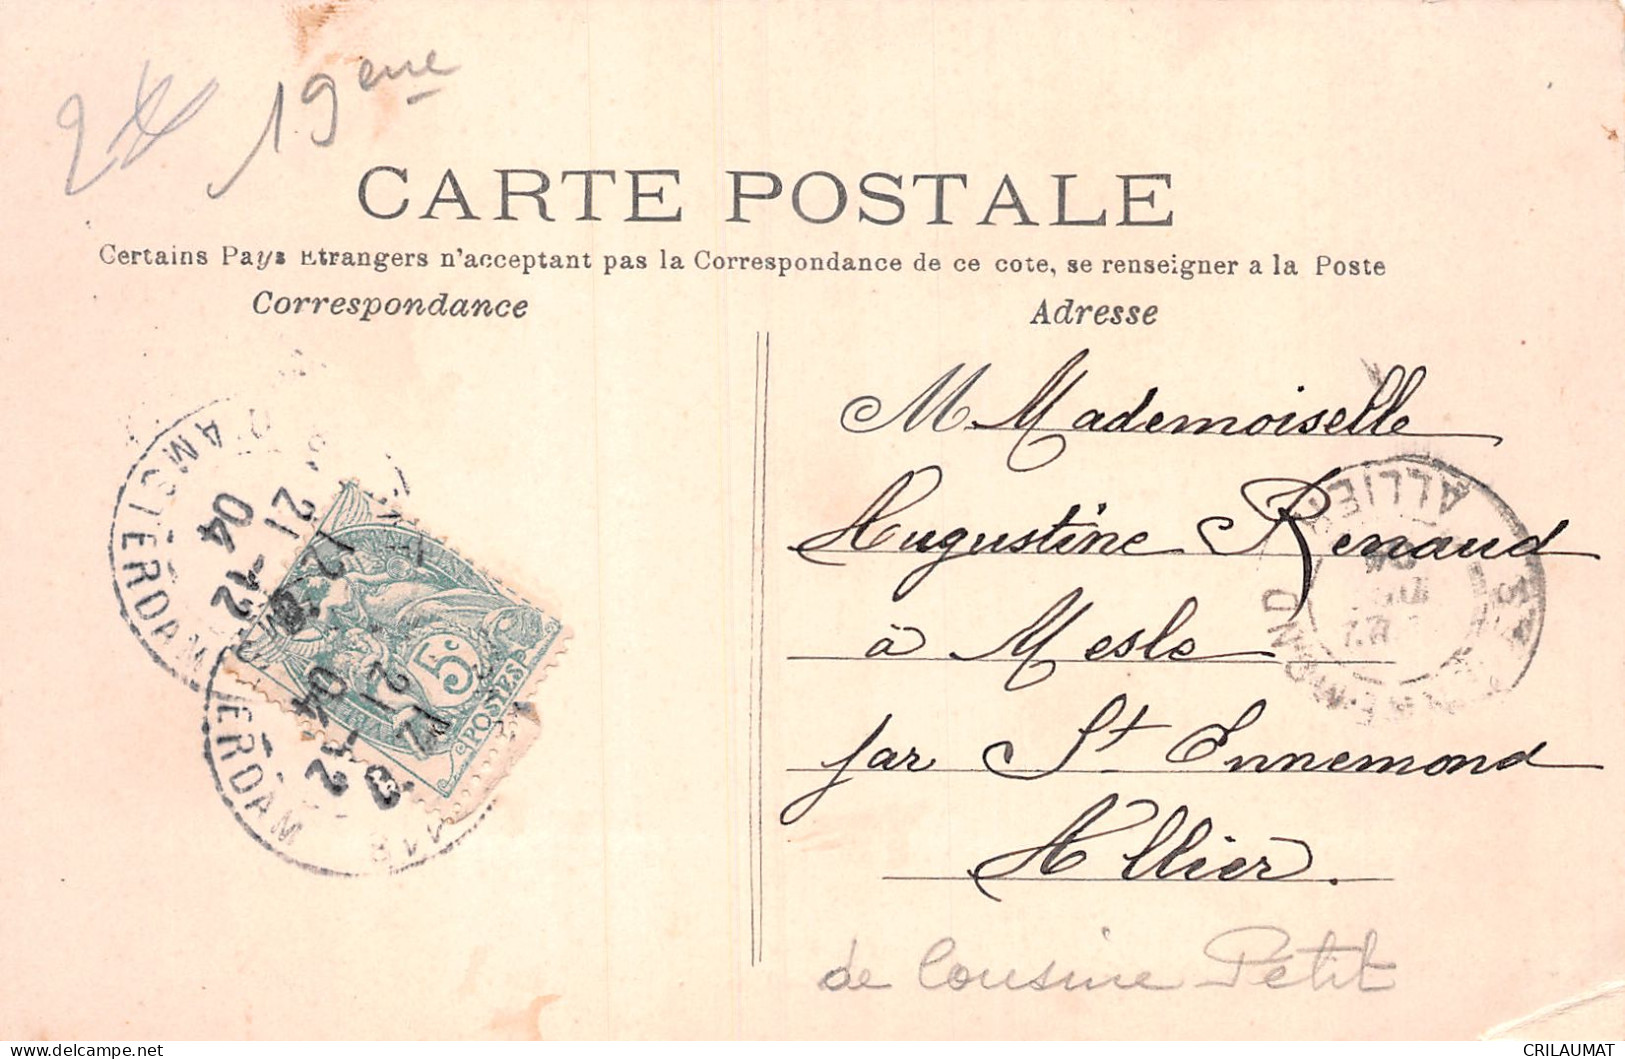 19eme
CARTE POSTALE
Certains Pays Etrangers n'acceptant pas la Correspondance de ce cote, se renseigner a la Poste
Correspondance
Adresse
M Mademoiselle
Augustine Renaud
à Mesle
par St Ennemond
Allier.
de Cousine Petit
D'AMSTERDAM
21
04
-12
5c
POSTES
12
21
04
-12
TERDAM
ALLIER
CRILAUMAT